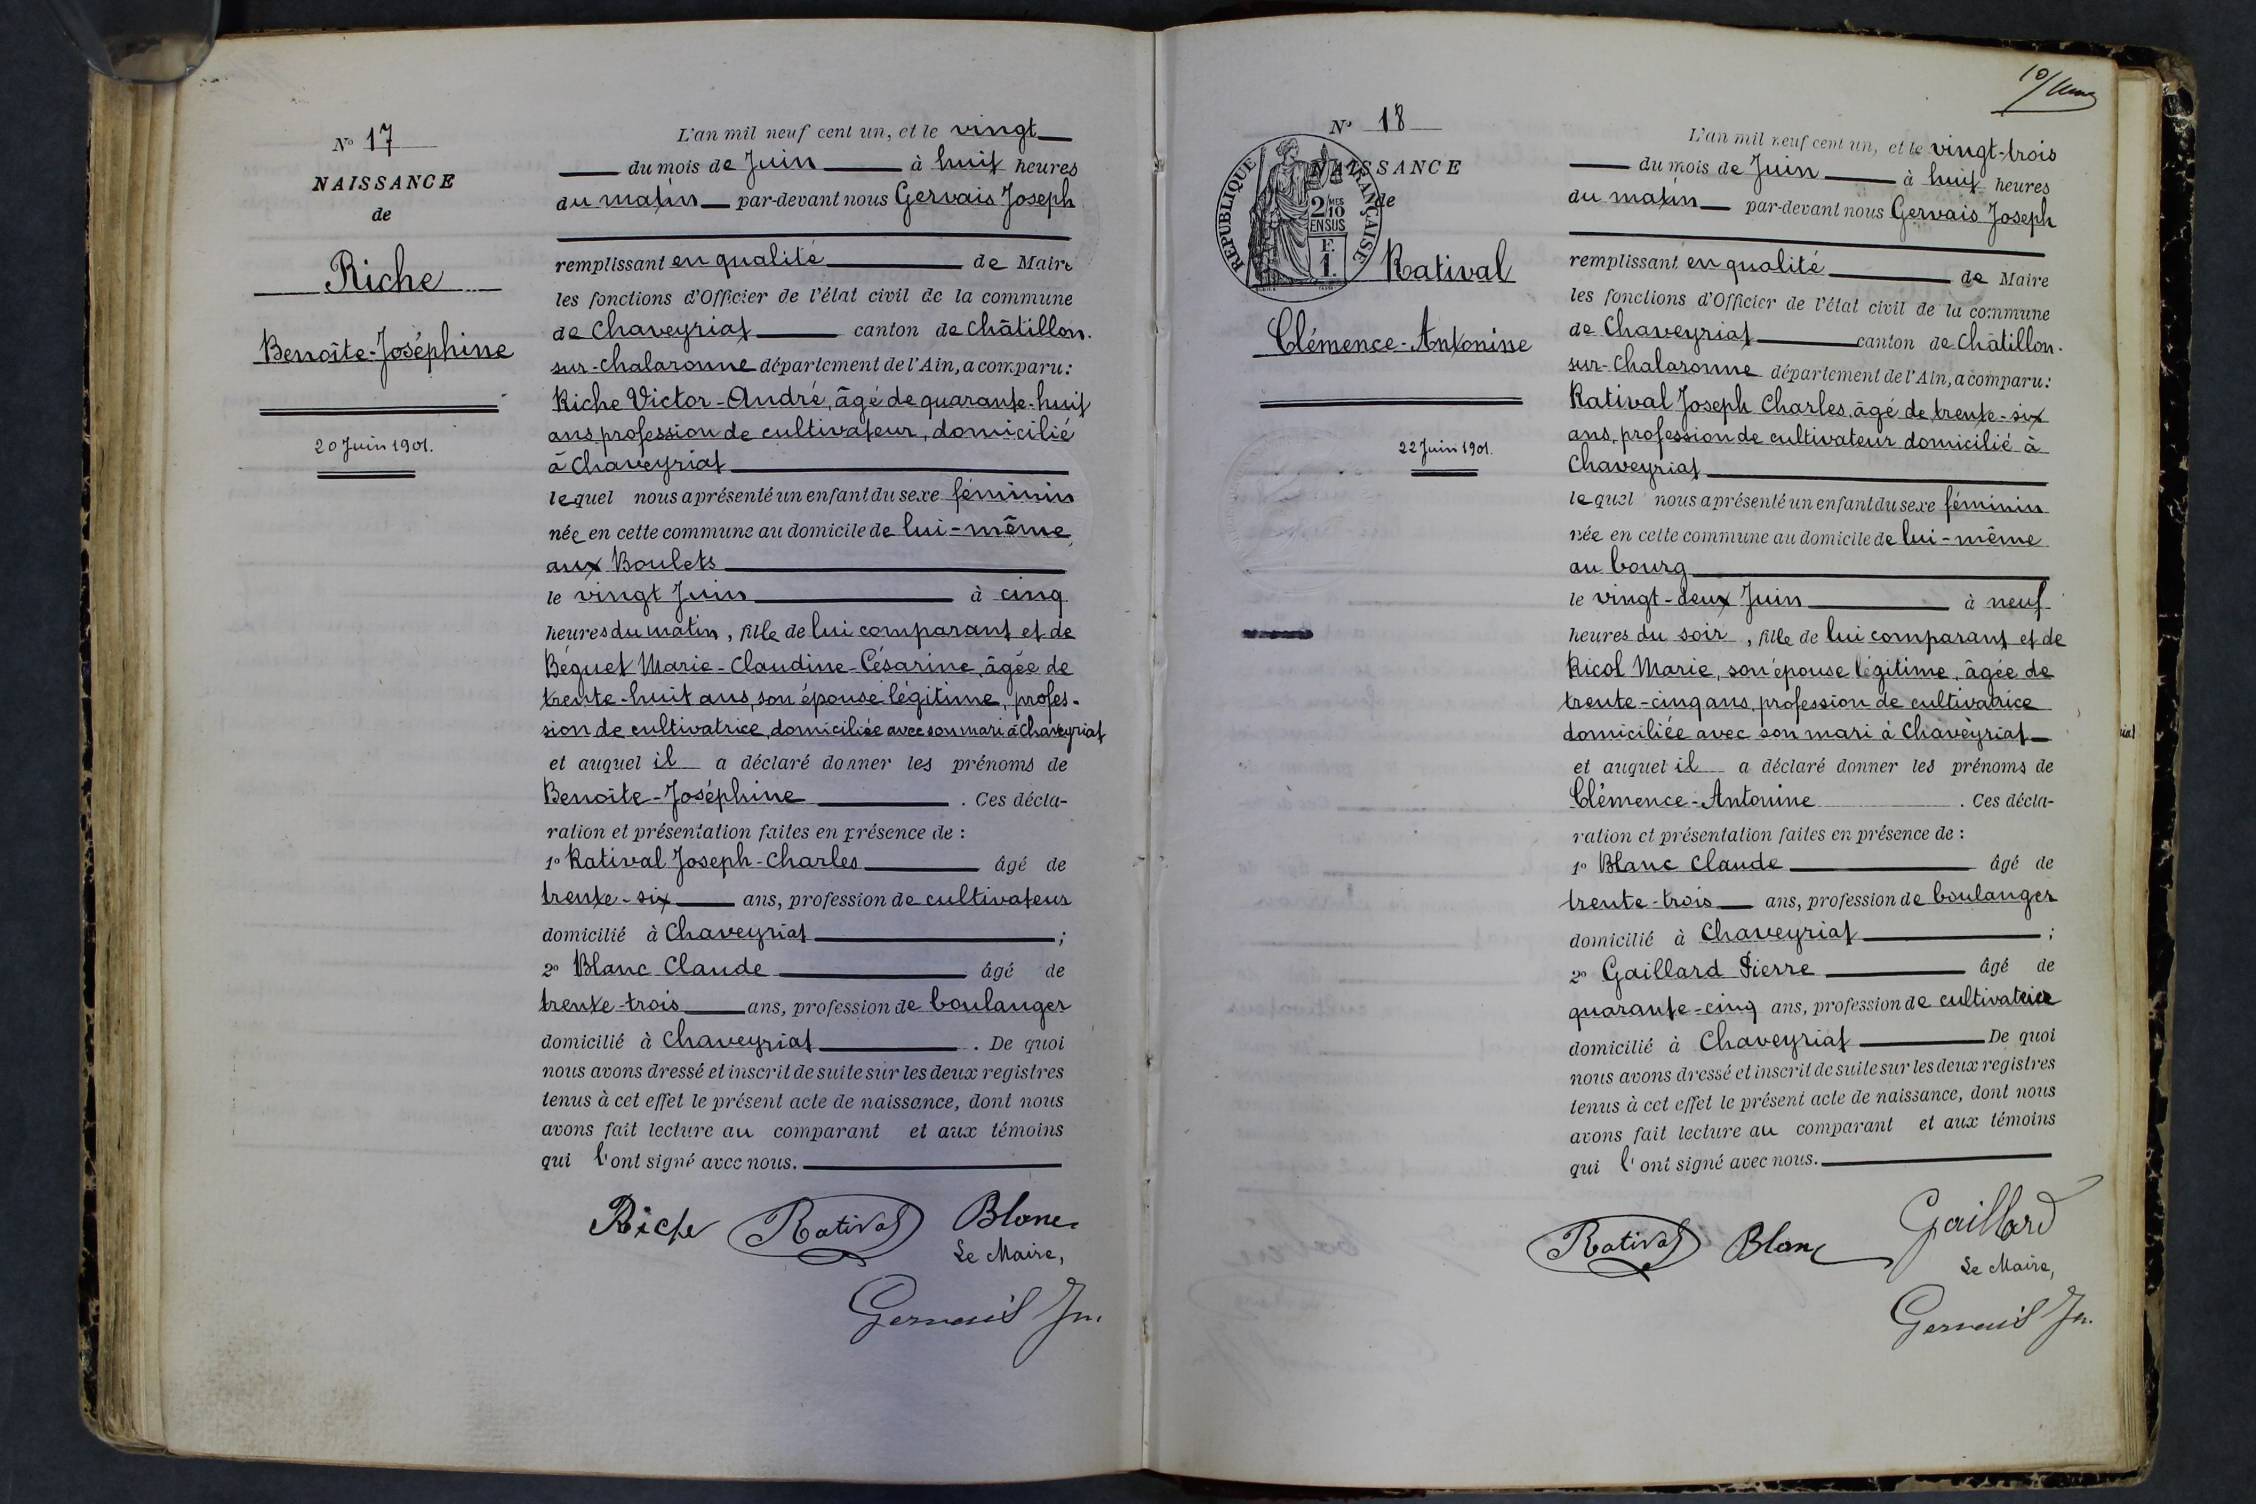 N° 17
NAISSANCE
de
Riche
Benoîte-Joséphine
20 Juin 1901.
L'an mil neuf cent un, et le vingt
du mois de Juin à huit heures
du matin par-devant nous Gervais Joseph
remplissant en qualité de Maire
les fonctions d'Officier de l'état civil de la commune
de Chaveyriat canton de Châtillon-
sur-Chalaronne département de l'Ain, a comparu:
Riche Victor-André, âgé de quarante-huit
ans, profession de cultivateur, domicilié
à Chaveyriat
lequel nous a présenté un enfant du sexe féminin
née en cette commune au domicile de lui-même,
aux Boulets
le vingt Juin à cinq
heures du matin, fille de lui comparant et de
Béguet Marie-Claudine-Césarine, âgée de
trente-huit ans, son épouse légitime, profes-
sion de cultivatrice, domiciliée avec son mari à Chaveyriat
et auquel il a déclaré donner les prénoms de
Benoîte-Joséphine . Ces décla-
ration et présentation faites en présence de :
1° Ratival Joseph-Charles âgé de
trente-six ans, profession de cultivateur
domicilié à Chaveyriat ;
2° Blanc Claude âgé de
trente-trois ans, profession de boulanger
domicilié à Chaveyriat . De quoi
nous avons dressé et inscrit de suite sur les deux registres
tenus à cet effet le présent acte de naissance, dont nous
avons fait lecture au comparant et aux témoins
qui l'ont signé avec nous.
Riche Ratival Blanc
Le Maire,
Gervais Jh.
10/
N° 18
NAISSANCE
de
RÉPUBLIQUE FRANÇAISE
2/10 MES
EN SUS
F.
1.
Ratival
Clémence-Antonine
22 Juin 1901.
L'an mil neuf cent un, et le vingt-trois
du mois de Juin à huit heures
du matin par-devant nous Gervais Joseph
remplissant en qualité de Maire
les fonctions d'Officier de l'état civil de la commune
de Chaveyriat canton de Châtillon-
sur-Chalaronne département de l'Ain, a comparu:
Ratival Joseph Charles, âgé de trente-six
ans, profession de cultivateur domicilié à
Chaveyriat
lequel nous a présenté un enfant du sexe féminin
née en cette commune au domicile de lui-même
au bourg
le vingt-deux Juin à neuf
heures du soir, fille de lui comparant et de
Ricol Marie, son épouse légitime, âgée de
trente-cinq ans, profession de cultivatrice
domiciliée avec son mari à Chaveyriat
et auquel il a déclaré donner les prénoms de
Clémence-Antonine . Ces décla-
ration et présentation faites en présence de :
1° Blanc Claude âgé de
trente-trois ans, profession de boulanger
domicilié à Chaveyriat ;
2° Gaillard Pierre âgé de
quarante-cinq ans, profession de
domicilié à Chaveyriat De quoi
nous avons dressé et inscrit de suite sur les deux registres
tenus à cet effet le présent acte de naissance, dont nous
avons fait lecture au comparant et aux témoins
qui l'ont signé avec nous.
Ratival Blanc Gaillard
Le Maire,
Gervais Jh.